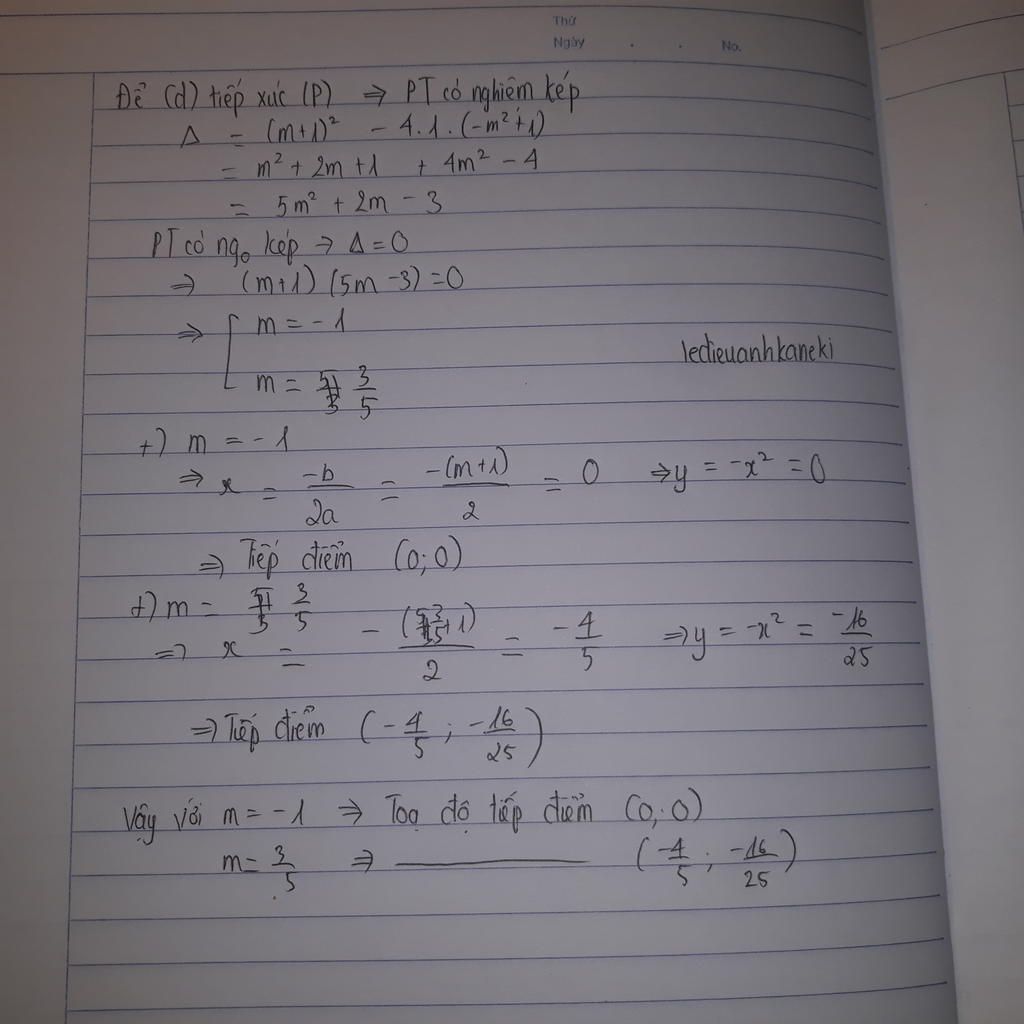 Thứ
Ngày . . No.
Để (d) tiếp xúc (P) ⇒ PT có nghiệm kép
Δ = (m+1)² - 4.1.(-m²+1)
= m² + 2m + 1 + 4m² - 4
= 5m² + 2m - 3
PT có ngo kép → Δ = 0
⇒ (m+1) (5m - 3) = 0
⇒ [ m = -1
m = 3/5
ledieuanhkaneki
+) m = -1
⇒ x = -b/2a = -(m+1)/2 = 0 ⇒ y = -x² = 0
⇒ Tiếp điểm (0; 0)
+) m = 3/5
⇒ x = -(3/5+1)/2 = -4/5 ⇒ y = -x² = -16/25
⇒ Tiếp điểm (-4/5 ; -16/25)
Vậy với m = -1 ⇒ Toạ độ tiếp điểm (0; 0)
m = 3/5 ⇒ ———— (-4/5 ; -16/25)